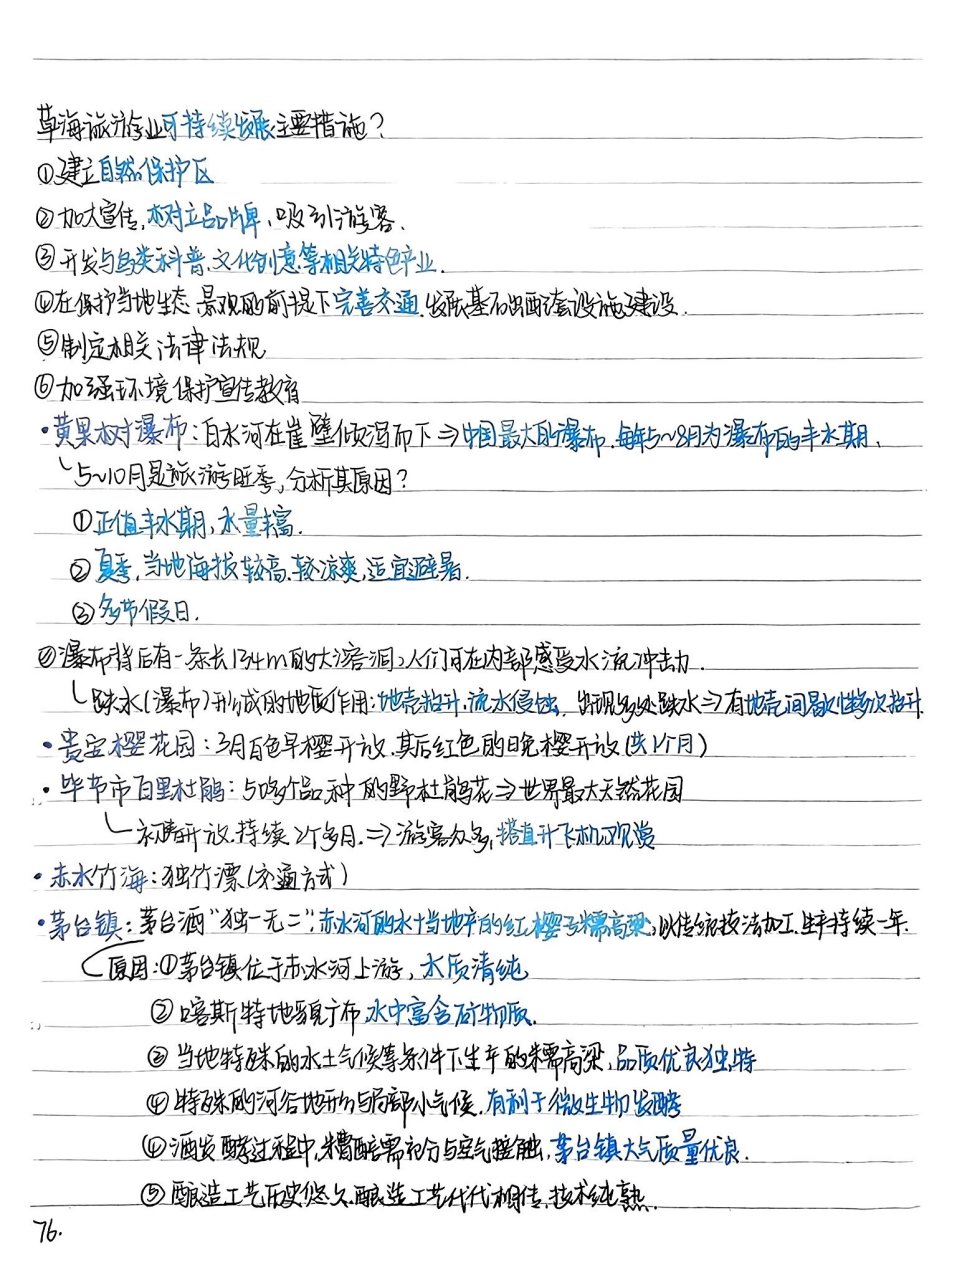 草海旅游业可持续发展主要措施?
①建立自然保护区
②加大宣传,树立品牌,吸引游客.
③开发与鸟类科普、文化创意等相关特色产业.
④在保护当地生态、景观的前提下完善交通.发展基础配套设施建设.
⑤制定相关法律法规
⑥加强环境保护宣传教育
·黄果树瀑布:白水河在崖壁倾泻而下⇒中国最大的瀑布.每年5~8月为瀑布的丰水期.
5~10月是旅游旺季,分析其原因?
①正值丰水期,水量丰富.
②夏季,当地海拔较高、较凉爽,适宜避暑.
③多节假日.
②瀑布背后有一条长134m的大溶洞,人们可在内部感受水流冲击力.
跌水(瀑布)形成的地质作用:地壳抬升.流水侵蚀.出现多处跌水⇒有地壳间歇性多次抬升
·贵安樱花园:3月白色早樱开放.其后红色的晚樱开放(共1个月)
·毕节市百里杜鹃:50多个品种的野杜鹃花⇒世界最大天然花园
开放.持续2个多月.⇒游客众多,搭直升飞机观赏
·赤水竹海:独竹漂(交通方式)
·茅台镇:茅台酒"独一无二":赤水河的水+当地产的红樱子糯高粱,以传统技法加工.生产持续一年.
原因:①茅台镇位于赤水河上游,水质清纯
②喀斯特地貌广布,水中富含矿物质.
③当地特殊的水土气候等条件下生产的糯高粱,品质优良独特
④特殊的河谷地形与局部小气候.有利于微生物发酵
④酒发酵过程中,糟醅需充分与空气接触,茅台镇大气质量优良.
⑤酿造工艺历史悠久.酿造工艺代代相传,技术纯熟.
76.